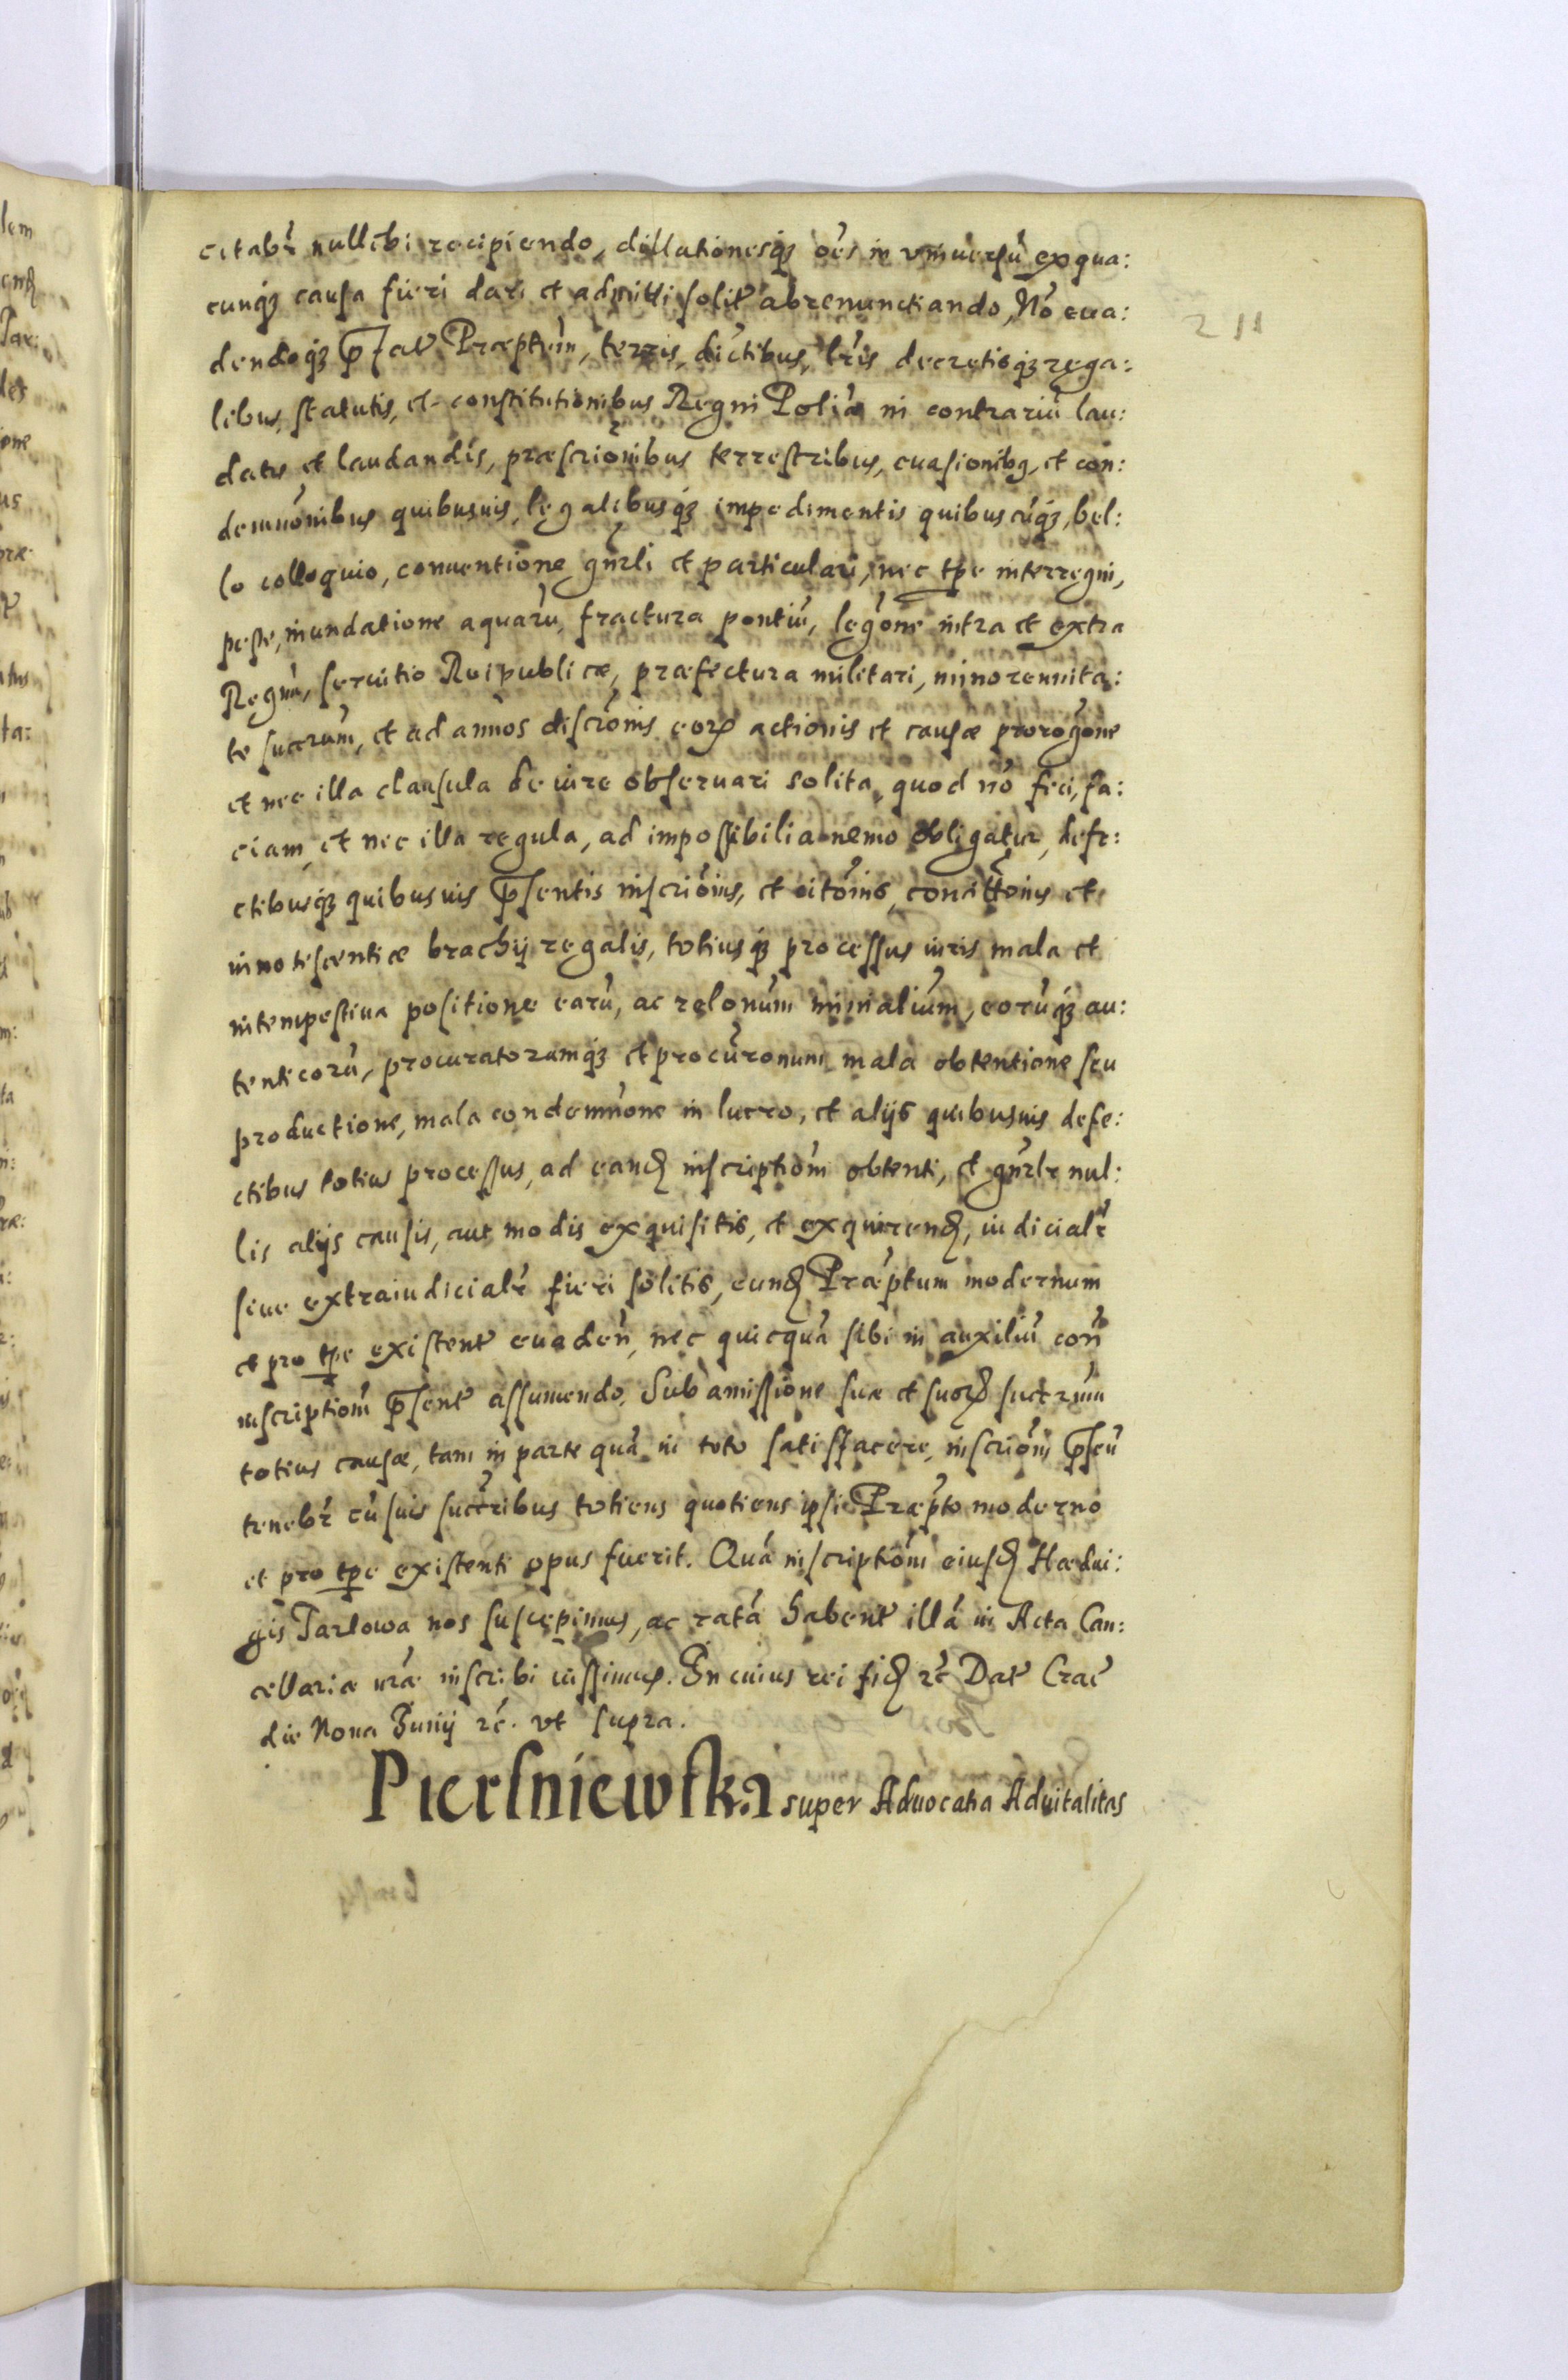 citabr̃ nullibi recipiendo, dillationesq́ꝫ oẽs in vniuersũ ex qua:
cunq́ꝫ causa fieri dari et admitti solit̃ abrenunctiando, Nõ eua:
dendoq́ꝫ p̃fat̃ Præptũm, terris, dictibus, lr̃is decretisq́ꝫ rega:
libus, statutis, et constitutionibus Regni Poliæ in contrariũ lau:
datis et laudandis, præscriõnibus terrestribus, euasionibꝫ, et con:
demnõnibus quibusuis, legalibusq́ꝫ impedimentis quibuscũq́ꝫ, bel:
lo colloquio, conuentione gñrli et particulari, nec tp̃e interregni,
peste, inundatione aquarũ, fractura pontiũ, legõne intra et extra
Regnũ, seruitio Reipublicæ, præfectura militari, minorennita:
te succrum̃, et ad annos discrõnis eorꝝ actionis et causæ prorogõne
et nec illa clausula de iure obseruari solita, quod nõ feci, fa:
ciam, et nec illa regula, ad impossibilia nemo obligatur, defe:
ctibusq́ꝫ quibusuis p̃sentis inscriõnis, et citõnis, condittõnis et
innotescentiæ brachij regalis, totiusq́ꝫ processus iuris mala et
intempestiua positione earũ, ac relonũm minialium̃, eorũq́ꝫ au:
tenticorũ, procuratorumq́ꝫ et procur̃onum mala obtentione seu
productione, mala condemnõne in lucro, et alijs quibusuis defe:
ctibus totius processus, ad eand̃ inscriptiõm obtenti, et gñrlr nul:
lis alijs causis, aut modis exquisitis, et exquirend̃, iudicialr̃
siue extraiudicialr̃ fieri solitis, eund̃ Præptum modernum
et pro tp̃e existent̃ euadeñ, nec quicquã sibi in auxiliũ coñ
inscriptiõm p̃sent̃ assumendo. Sub amissione suæ et suorꝝ succrum̃
totius causæ, tam in parte quã in toto satisffacere, inscriõni p̃señ
tenebr̃ cũ suis succribus totiens quotiens ipsi Præp̃to moderno
et pro tp̃e existenti opus fuerit. Quã inscriptiõm eiusd̃ Hædui:
gis Tarlowa nos suscepimus, ac ratã habent̃ illã in Acta Can:
cellariæ nr̃æ inscribi iussimus. In cuius rei fid̃ rc̃ Dat̃ Crac̃
die Nona Junij rc̃. vt supra.
Piersniewska super Aduocatia Aduitalitas
211